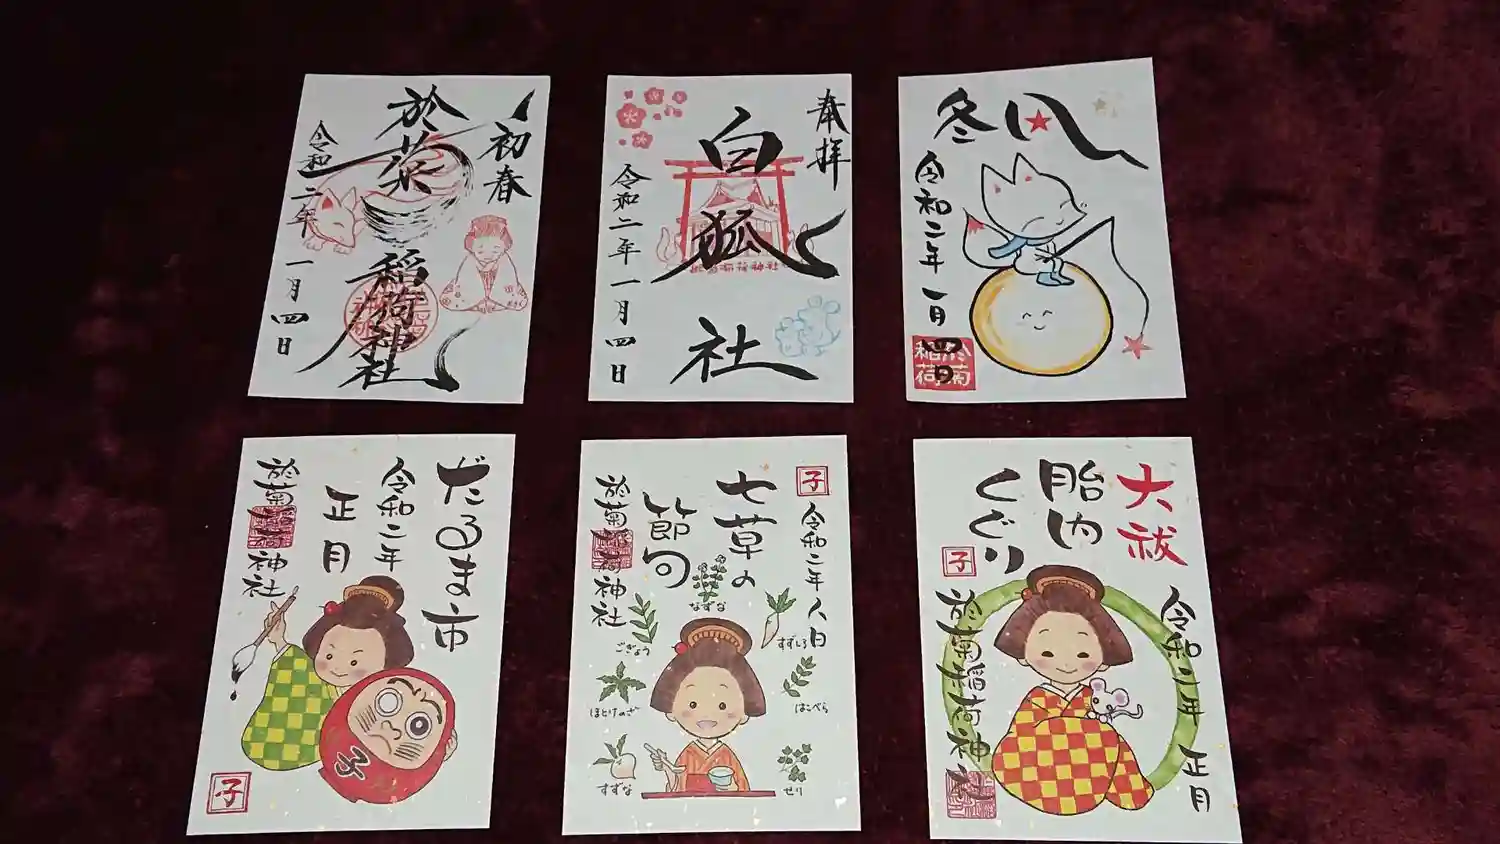 初春
於菊稲荷神社
令和二年一月四日
奉拝
白狐社
令和二年一月四日
冬
令和二年一月四日
於菊
稲荷
だるま市
令和二年
正月
於菊稲荷神社
子
子
子
令和二年人日
七草の
節句
於菊稲荷神社
なずな
ごぎょう
すずしろ
ほとけのざ
はこべら
すずな
せり
大祓
胎内
くぐり
子
令和二年正月
於菊稲荷神社